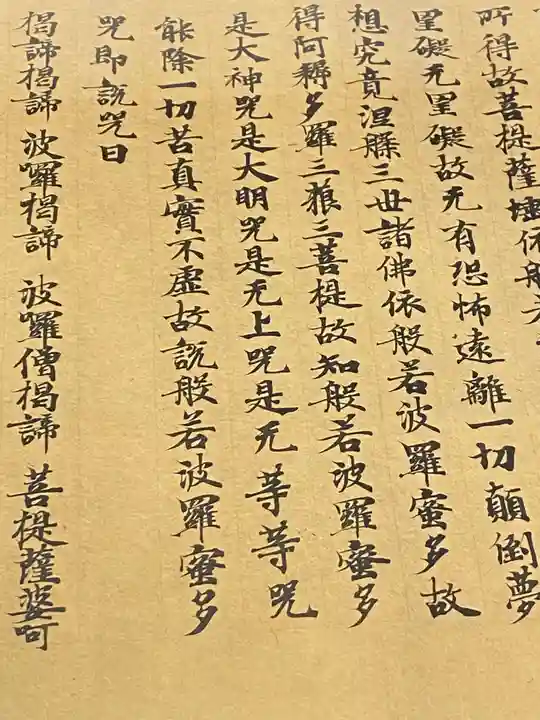 所得故菩提薩埵依般
罣礙无罣礙故无有恐怖遠離一切顛倒夢
想究竟涅槃三世諸佛依般若波羅蜜多故
得阿耨多羅三藐三菩提故知般若波羅蜜多
是大神咒是大明咒是无上咒是无等等咒
能除一切苦真實不虛故說般若波羅蜜多
咒即說咒曰
揭諦揭諦 波囉揭諦 波囉僧揭諦 菩提薩婆呵